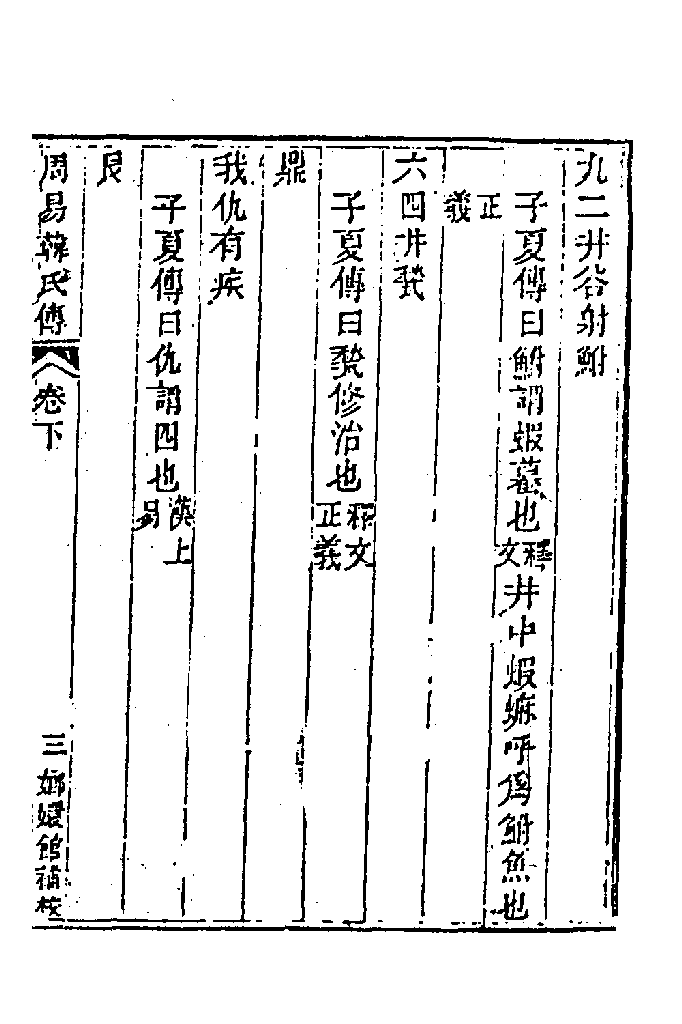 九二井谷射鮒
子夏傳曰鮒謂蝦蟇也釋文井中蝦蟇呼爲鮒魚也
正義
六四井甃
子夏傳曰甃修治也釋文正義
鼎
我仇有疾
子夏傳曰仇謂四也漢上易
艮
周易韓氏傳 卷下 三 嫏嬛館補校